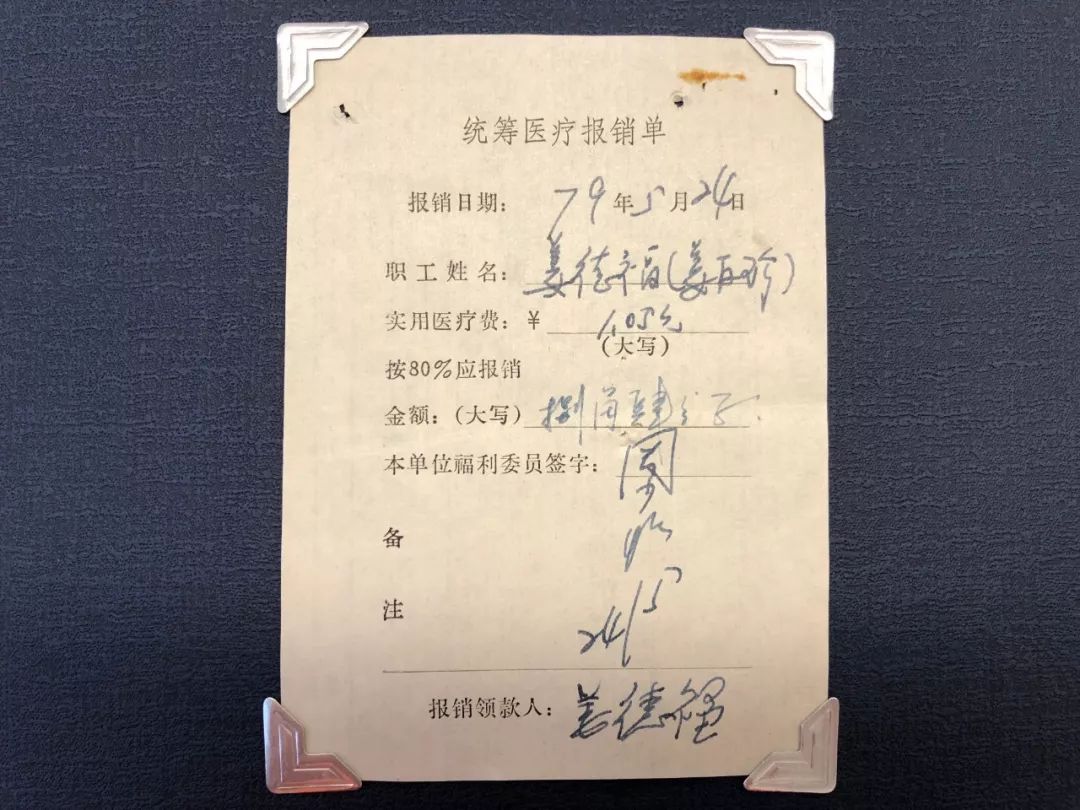 统筹医疗报销单
报销日期: 79年5月24日
职工姓名: 姜德福(姜百珍)
实用医疗费: ¥ 1.05元
(大写)
按80%应报销
金额: (大写) 捌角肆分正
本单位福利委员签字:
备
24/5
注
报销领款人: 姜德福